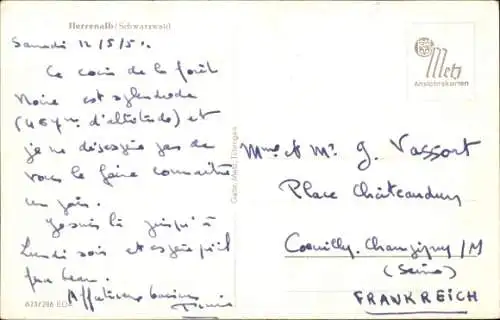 Herrenalb (Schwarzwald)
Samedi 12/5/5
Ce coin de la forêt
Noire est splendide
d'altitude) et
je ne désespère pas de
vous le faire connaître
un jour.
Je suis là jusqu'à
Lundi soir et espère qu'il
fera beau.
Affectueux baisers
Metz
Ansichtskarten
Gebr. Metz, Tübingen
Mme et Mr G. Vassort
Place Châteaudun
Champigny/M
(Seine)
FRANKREICH